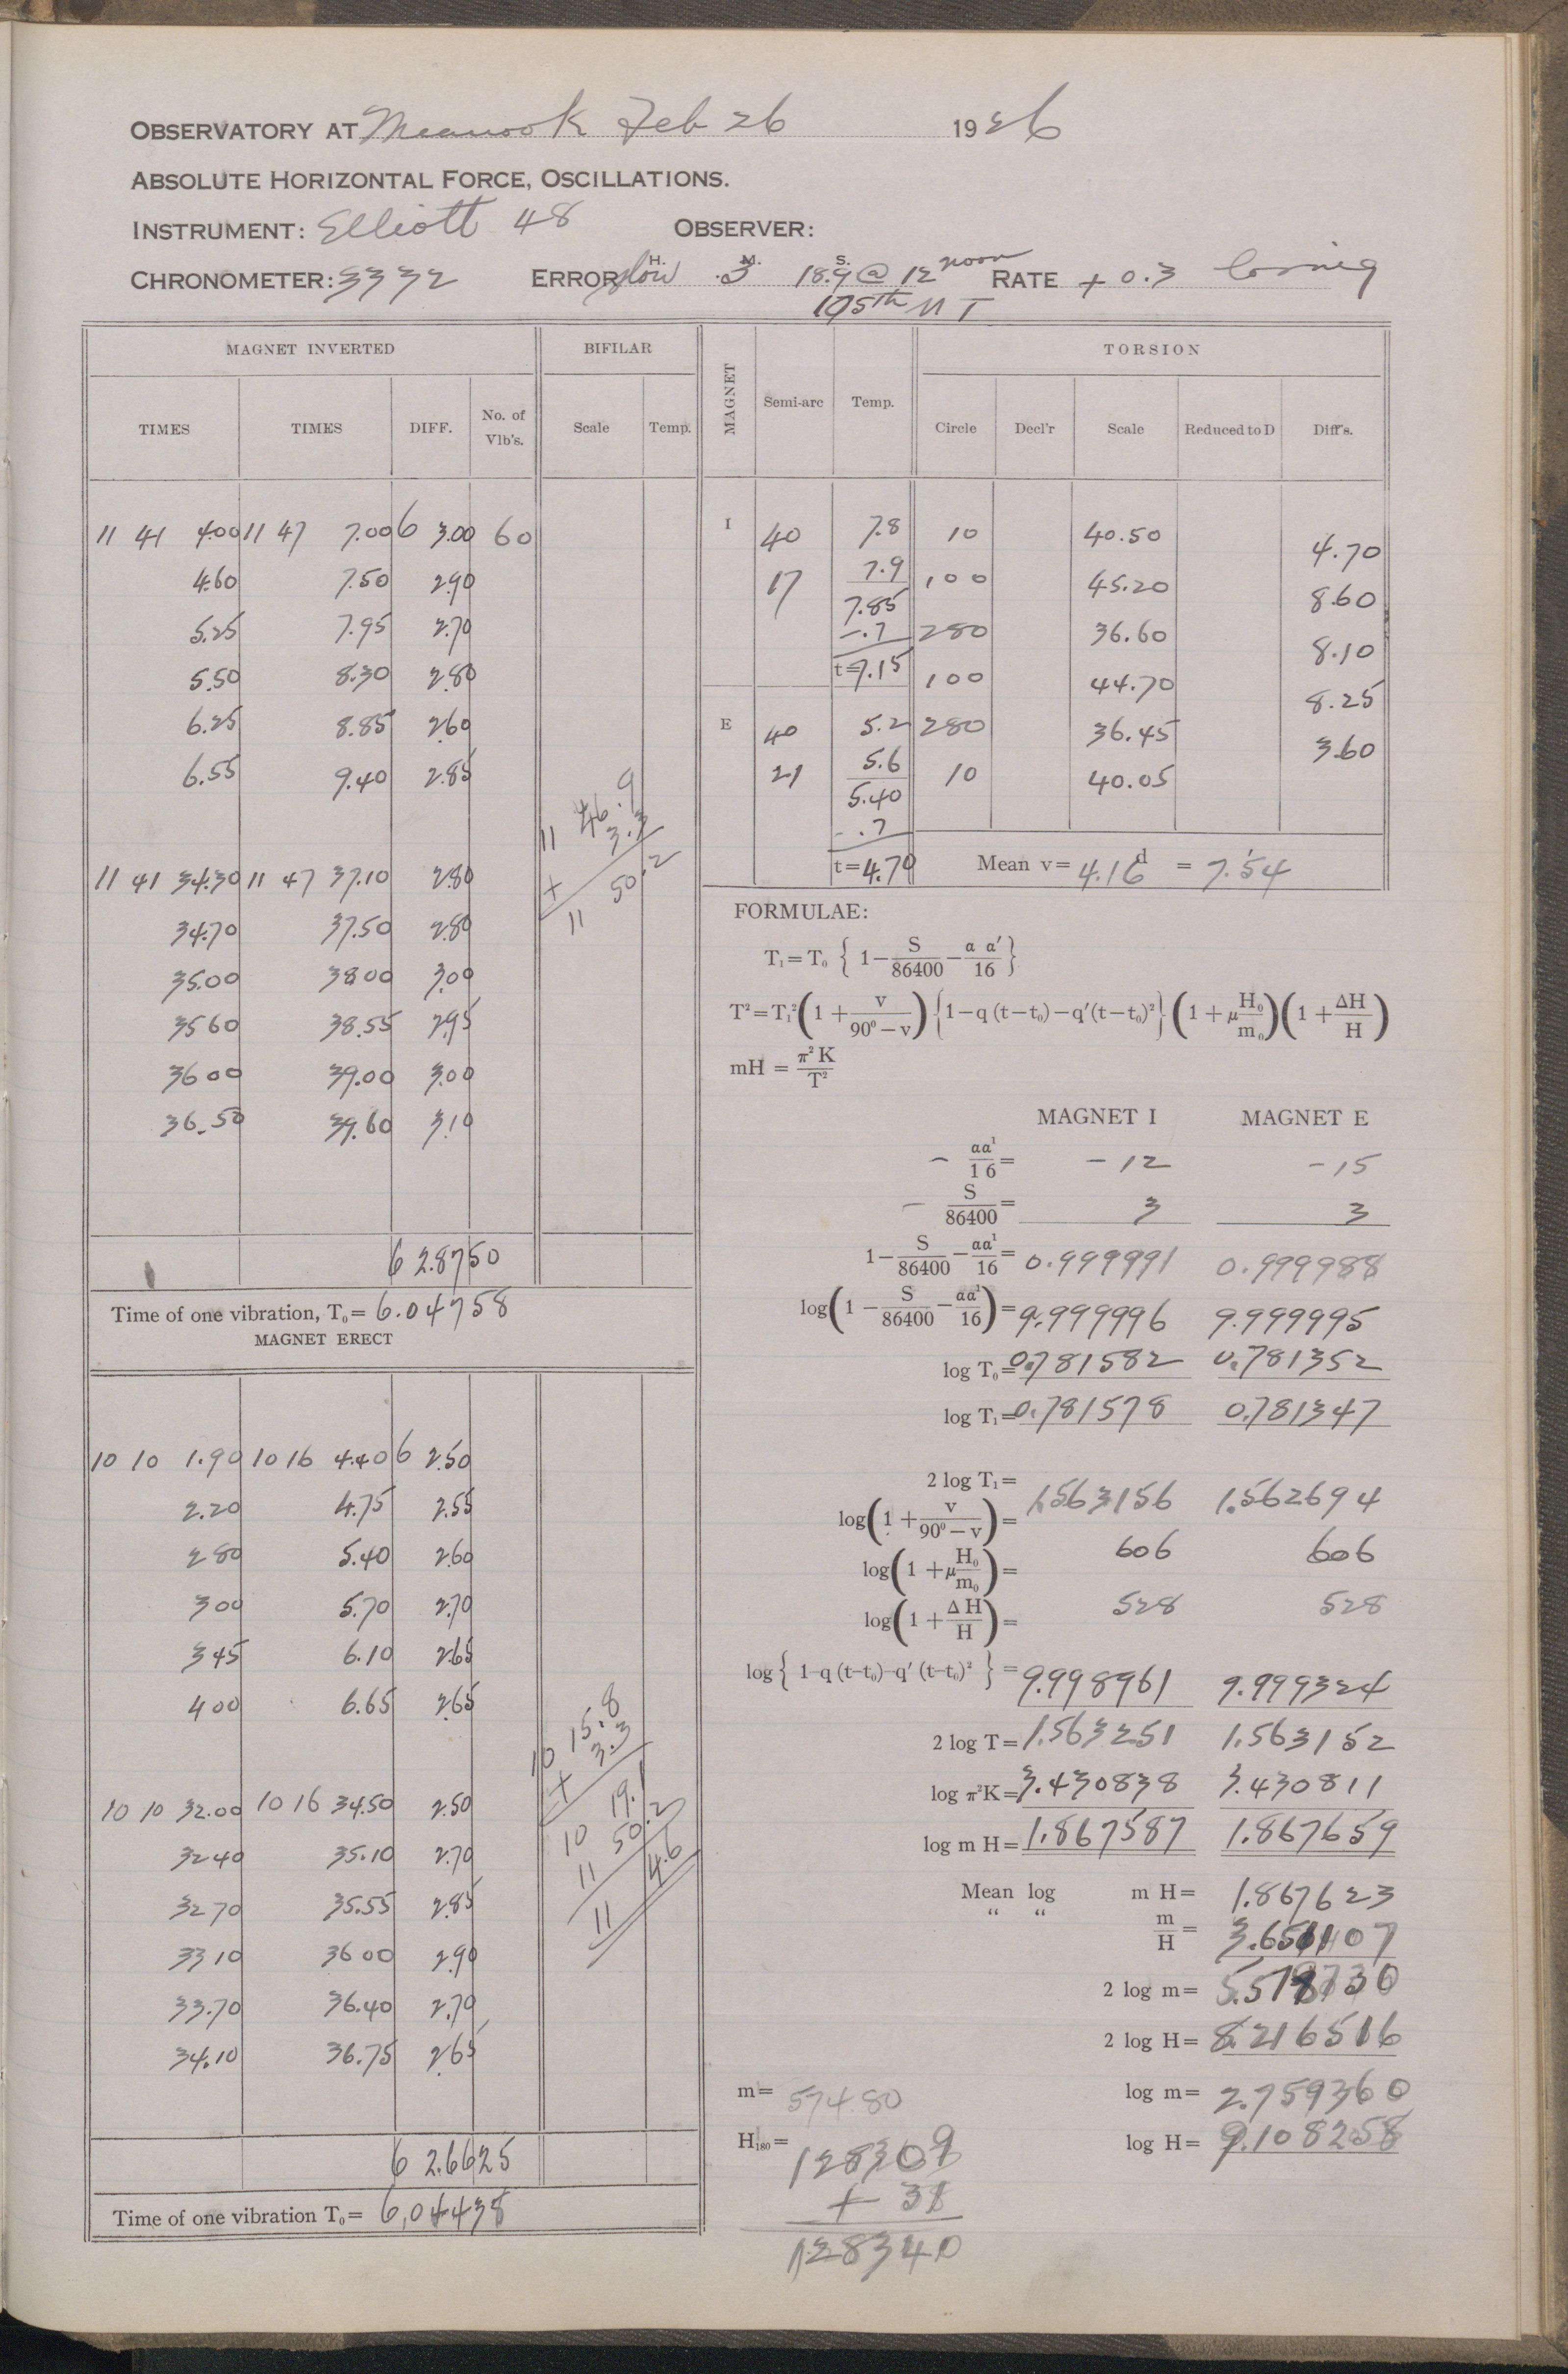 OBSERVATORY AT Meanook Feb 26 1926
ABSOLUTE HORIZONTAL FORCE, OSCILLATIONS.
INSTRUMENT: Elliott 48 OBSERVER:
CHRONOMETER: 3332 ERROR slow H. M. S. 3 18.9 @ 12 noon RATE + 0.3 losing
105th M T
MAGNET INVERTED BIFILAR
TIMES TIMES DIFF. No. of Vib's. Scale Temp.
11 41 4.00 11 47 7.00 6 3.00 60
4.60 7.50 2.90
5.25 7.95 2.70
5.50 8.30 2.80
6.25 8.85 2.60
6.55 9.40 2.85
11 46.9
+ 3.3
11 50.2
11 41 34.30 11 47 37.10 2.80
34.70 37.50 2.80
35.00 38.00 3.00
35 60 38.55 2.95
36 00 39.00 3.00
36.50 39.60 3.10
6 2.8750
Time of one vibration, T₀= 6.04758
MAGNET ERECT
10 10 1.90 10 16 4.40 6 2.50
2.20 4.75 2.55
2 80 5.40 2.60
3 00 5.70 2.70
3 45 6.10 2.65
4 00 6.65 2.65
10 15.8
+ 3.3
10 19.1
11 50.2
11 4.6
10 10 32.00 10 16 34.50 2.50
32 40 35.10 2.70
32 70 35.55 2.85
33 10 36 00 2.90
33.70 36.40 2.70
34.10 36.75 2.65
6 2.6625
Time of one vibration T₀= 6.04438
MAGNET Semi-arc Temp. TORSION
Circle Decl'r Scale Reduced to D Diff's.
I 40 7.8 10 40.50
4.70
17 7.9 100 45.20
7.85 8.60
-.7 280 36.60
8.10
t=7.15 100 44.70
8.25
E 40 5.2 280 36.45
3.60
21 5.6 10 40.05
5.40
-.7
t=4.70 Mean v= 4.16 d = 7.'54
FORMULAE:
T₁=T₀ { 1 − S/86400 − α α′/16 }
T²=T₁²(1 + v/90⁰−v) {1−q (t−t₀)−q′(t−t₀)²} (1+μ H₀/m₀)(1+ΔH/H)
mH = π²K/T²
MAGNET I MAGNET E
− αα¹/16 = −12 −15
− S/86400 = 3 3
1− S/86400 − αα¹/16 = 0.999991 0.999988
log(1 − S/86400 − αα¹/16) = 9.999996 9.999995
log T₀= 0.781582 0.781352
log T₁= 0.781578 0.781347
2 log T₁= 1.563156 1.562694
log(1 + v/90⁰−v) = 606 606
log(1 + μ H₀/m₀) = 528 528
log(1 + ΔH/H) =
log { 1−q (t−t₀)−q′ (t−t₀)² } = 9.998961 9.999324
2 log T= 1.563251 1.563152
log π²K= 3.430838 3.430811
log m H= 1.867587 1.867659
Mean log m H= 1.867623
“ “ m/H =
2 log m=
2 log H= 8.216516
m= 574.80 log m= 2.759360
H₁₈₀= 128309 log H= 9.108258
+ 31
128340